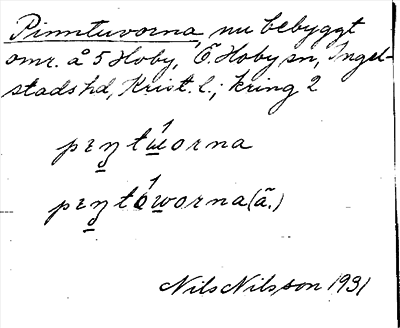 Pinntuvorna, nu bebyggt
omr. å 5 Hoby, Ö. Hoby sn, Ingel-
stads hd, Krist. l.; kring 2
pɛŋtúworna
pɛŋtówworna (ä.)
Nils Nilsson 1931